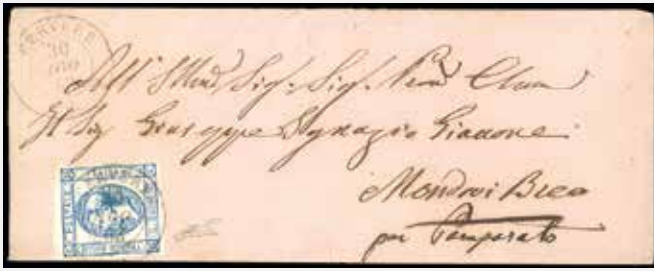 CERVERE
30
All' Illmo Sig. Sig. Pne Clmo
Il Sig Giuseppe Ignazio Giaccone
Mondovi Breo
per Pamparato